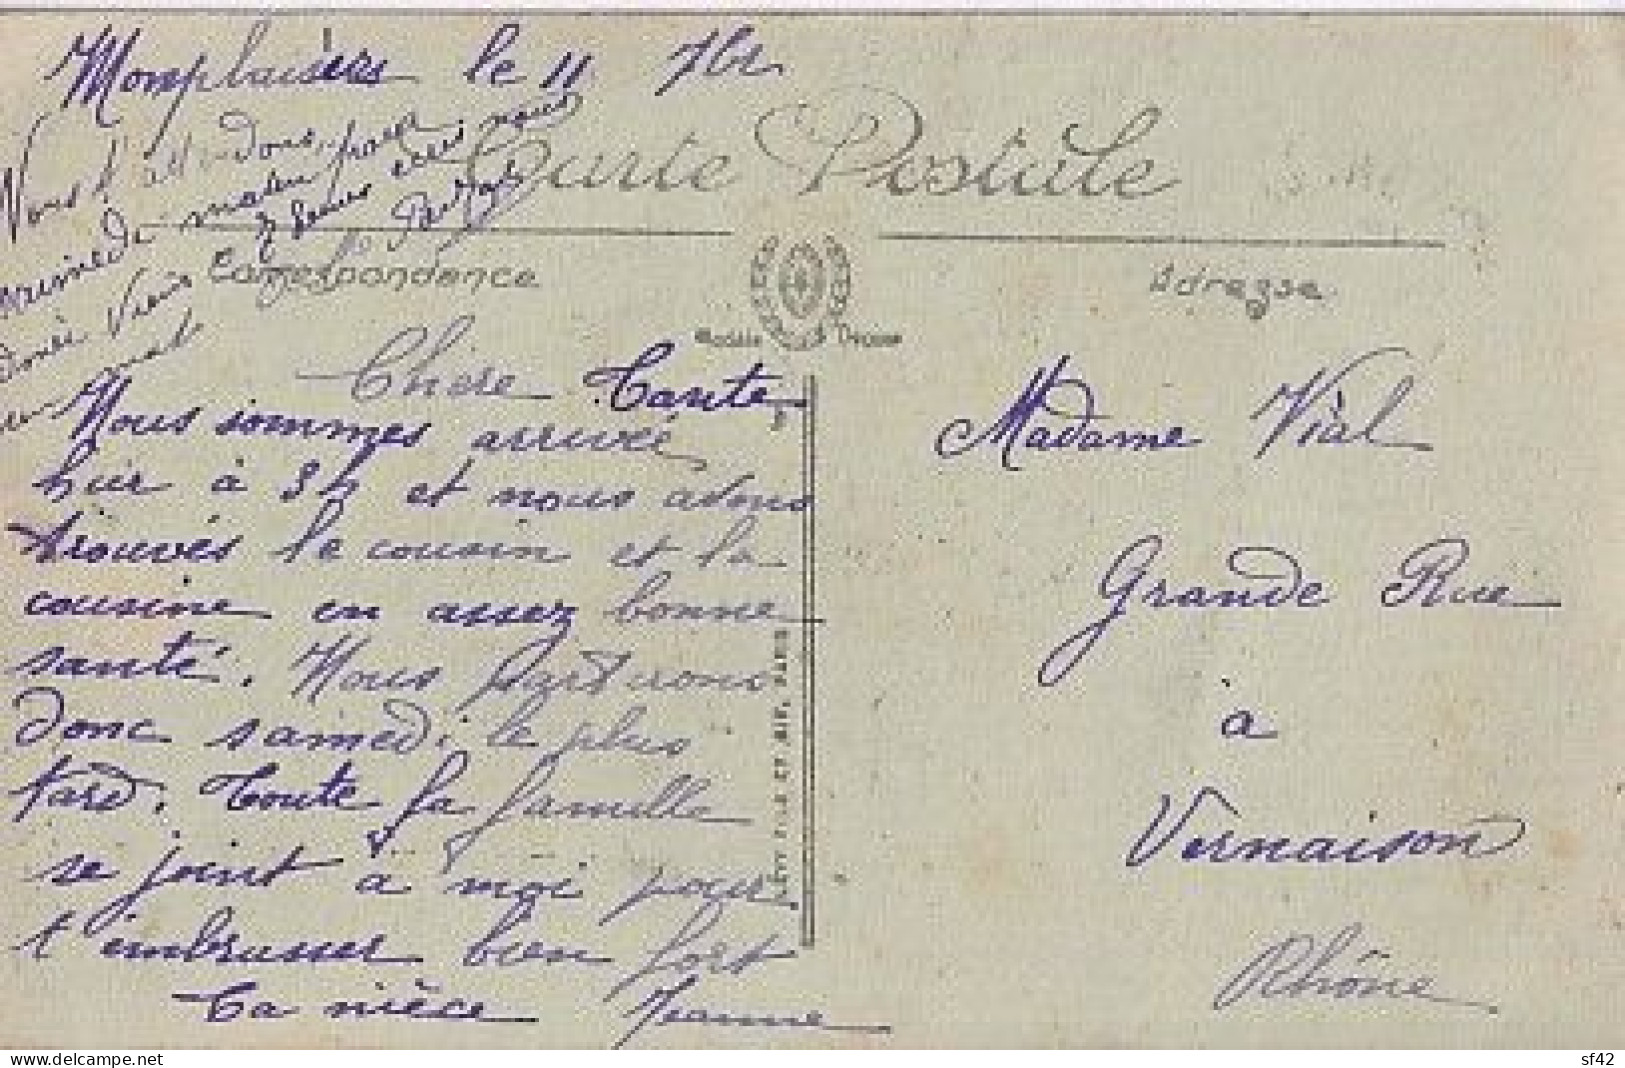 Monplaisir le 11 7bre
Nous l'attendons pour
demain
2 heures
Carte Postale
Correspondance
Adresse
Modèle Déposé
Chère Tante
Nous sommes arrivée
hier à 8 h et nous avons
trouvés le cousin et la
cousine en assez bonne
santé. Nous partirons
donc samedi le plus
tard. Toute la famille
se joint à moi pour
t'embrasser bien fort
Ta nièce Jeanne
LÉVY FILS ET CIE, PARIS
Madame Vial
Grande Rue
à
Vernaison
Rhône
delcampe.net
sf42